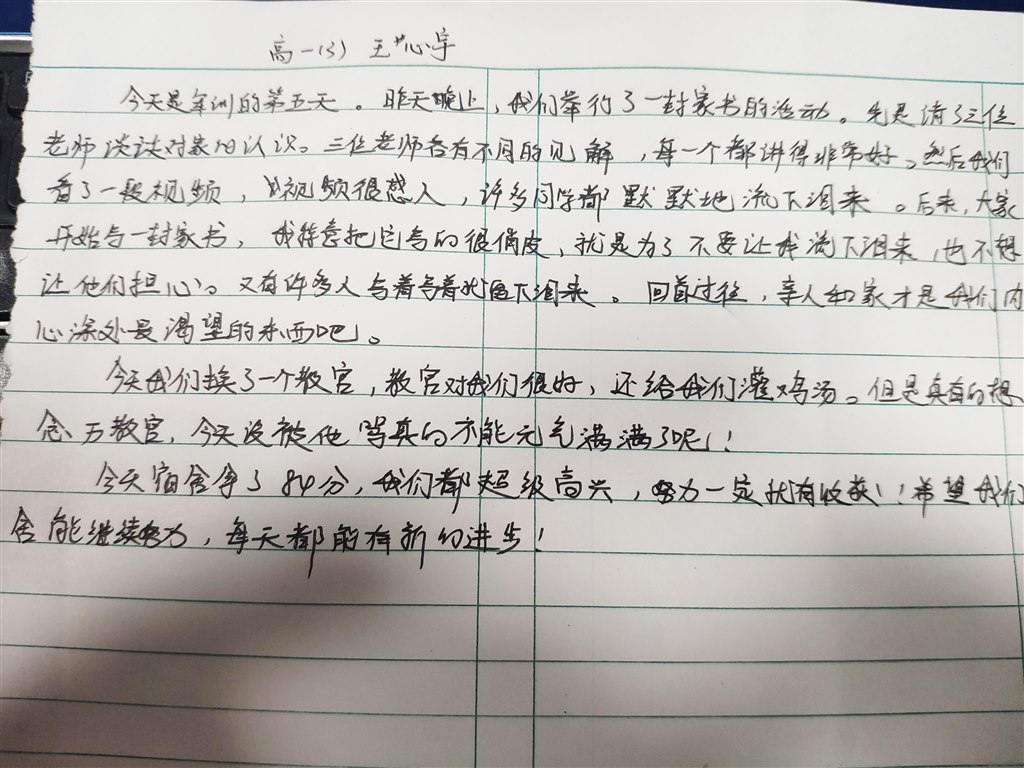 高一(3) 王心宇
今天是军训的第五天。昨天晚上,我们举行了一封家书的活动。先是请了三位
老师谈谈对家的认识。三位老师各有不同的见解,每一个都讲得非常好。然后我们
看了一段视频,视频很感人,许多同学都默默地流下泪来。后来,大家
开始写一封家书,我特意把它写的很俏皮,就是为了不要让我流下泪来,也不想
让他们担心。又有许多人写着写着就留下泪来。回首过往,亲人和家才是我们内
心深处最渴望的东西吧。
今天我们换了一个教官,教官对我们很好,还给我们灌鸡汤。但是真有的想
念万教官,今天没被他骂真的不能元气满满了呢!
今天宿舍争了84分,我们都超级高兴,努力一定就有收获!!希望我们
舍能继续努力,每天都能有新的进步!